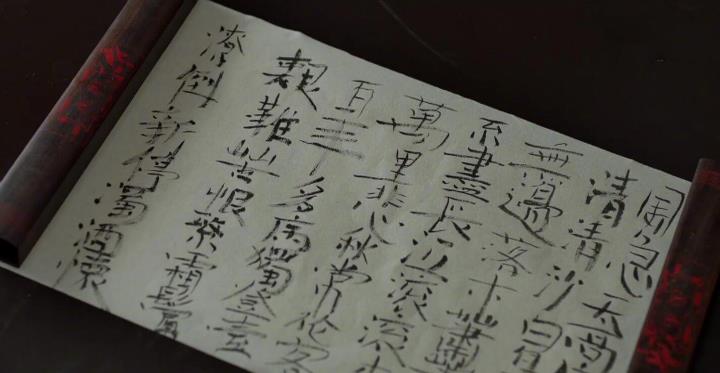 風急天高
清清沙白
無邊落木蕭
不盡長江滾滾
萬里悲秋常作客
百年多病獨登臺
艱難苦恨繁霜鬢
潦倒新停濁酒